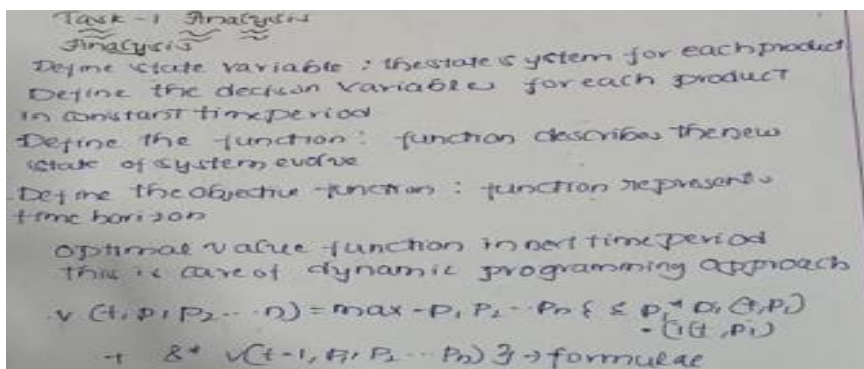 Task - 1 Analysis
Analysis
Define state variable : the state system for each product
Define the decision variables for each product
in constant time period
Define the function : function describes the new
state of system evolve
Define the objective function : function represents
time horizon
optimal value function in next time period
This is care of dynamic programming approach
v (t, p, p2 ... n) = max - p, P2 .. Pn { ≤ p,* D, (t, pi)
- (i(t, pi)
+ &* v(t-1, P1, P2 ... Pn) } → formulae